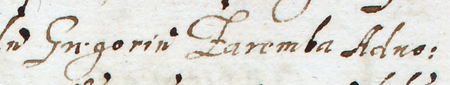 Gregoriũ Zaremba Adno: